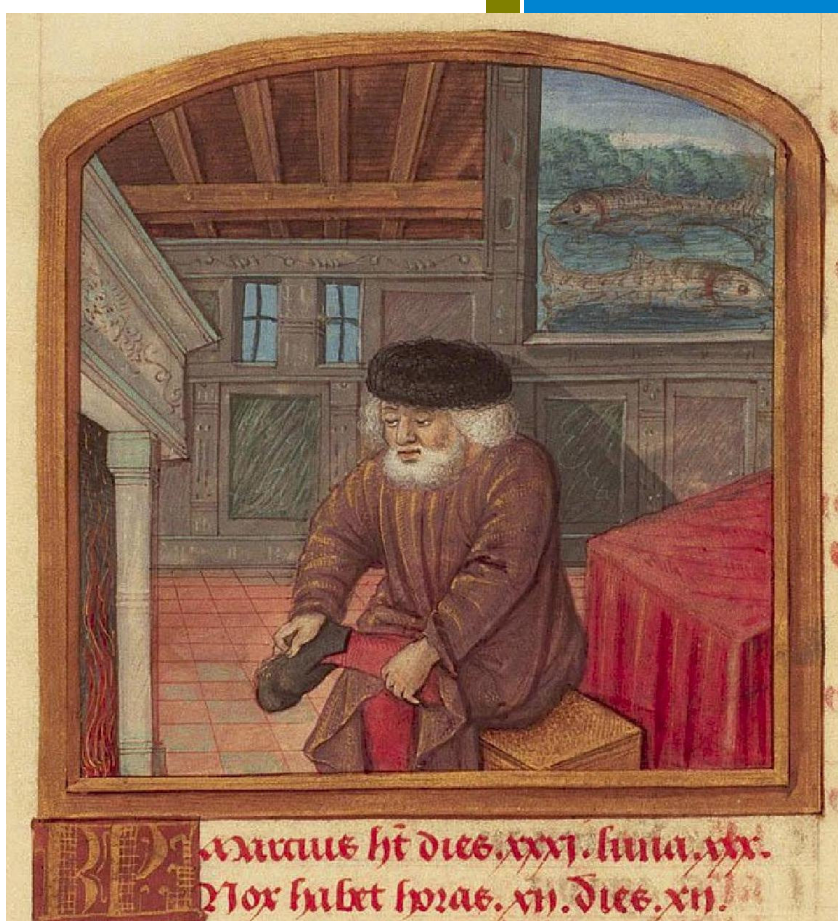 KL Marcius ht̄ dies.xxxj. luna.xxx.
Nox habet horas.xij. dies.xij.